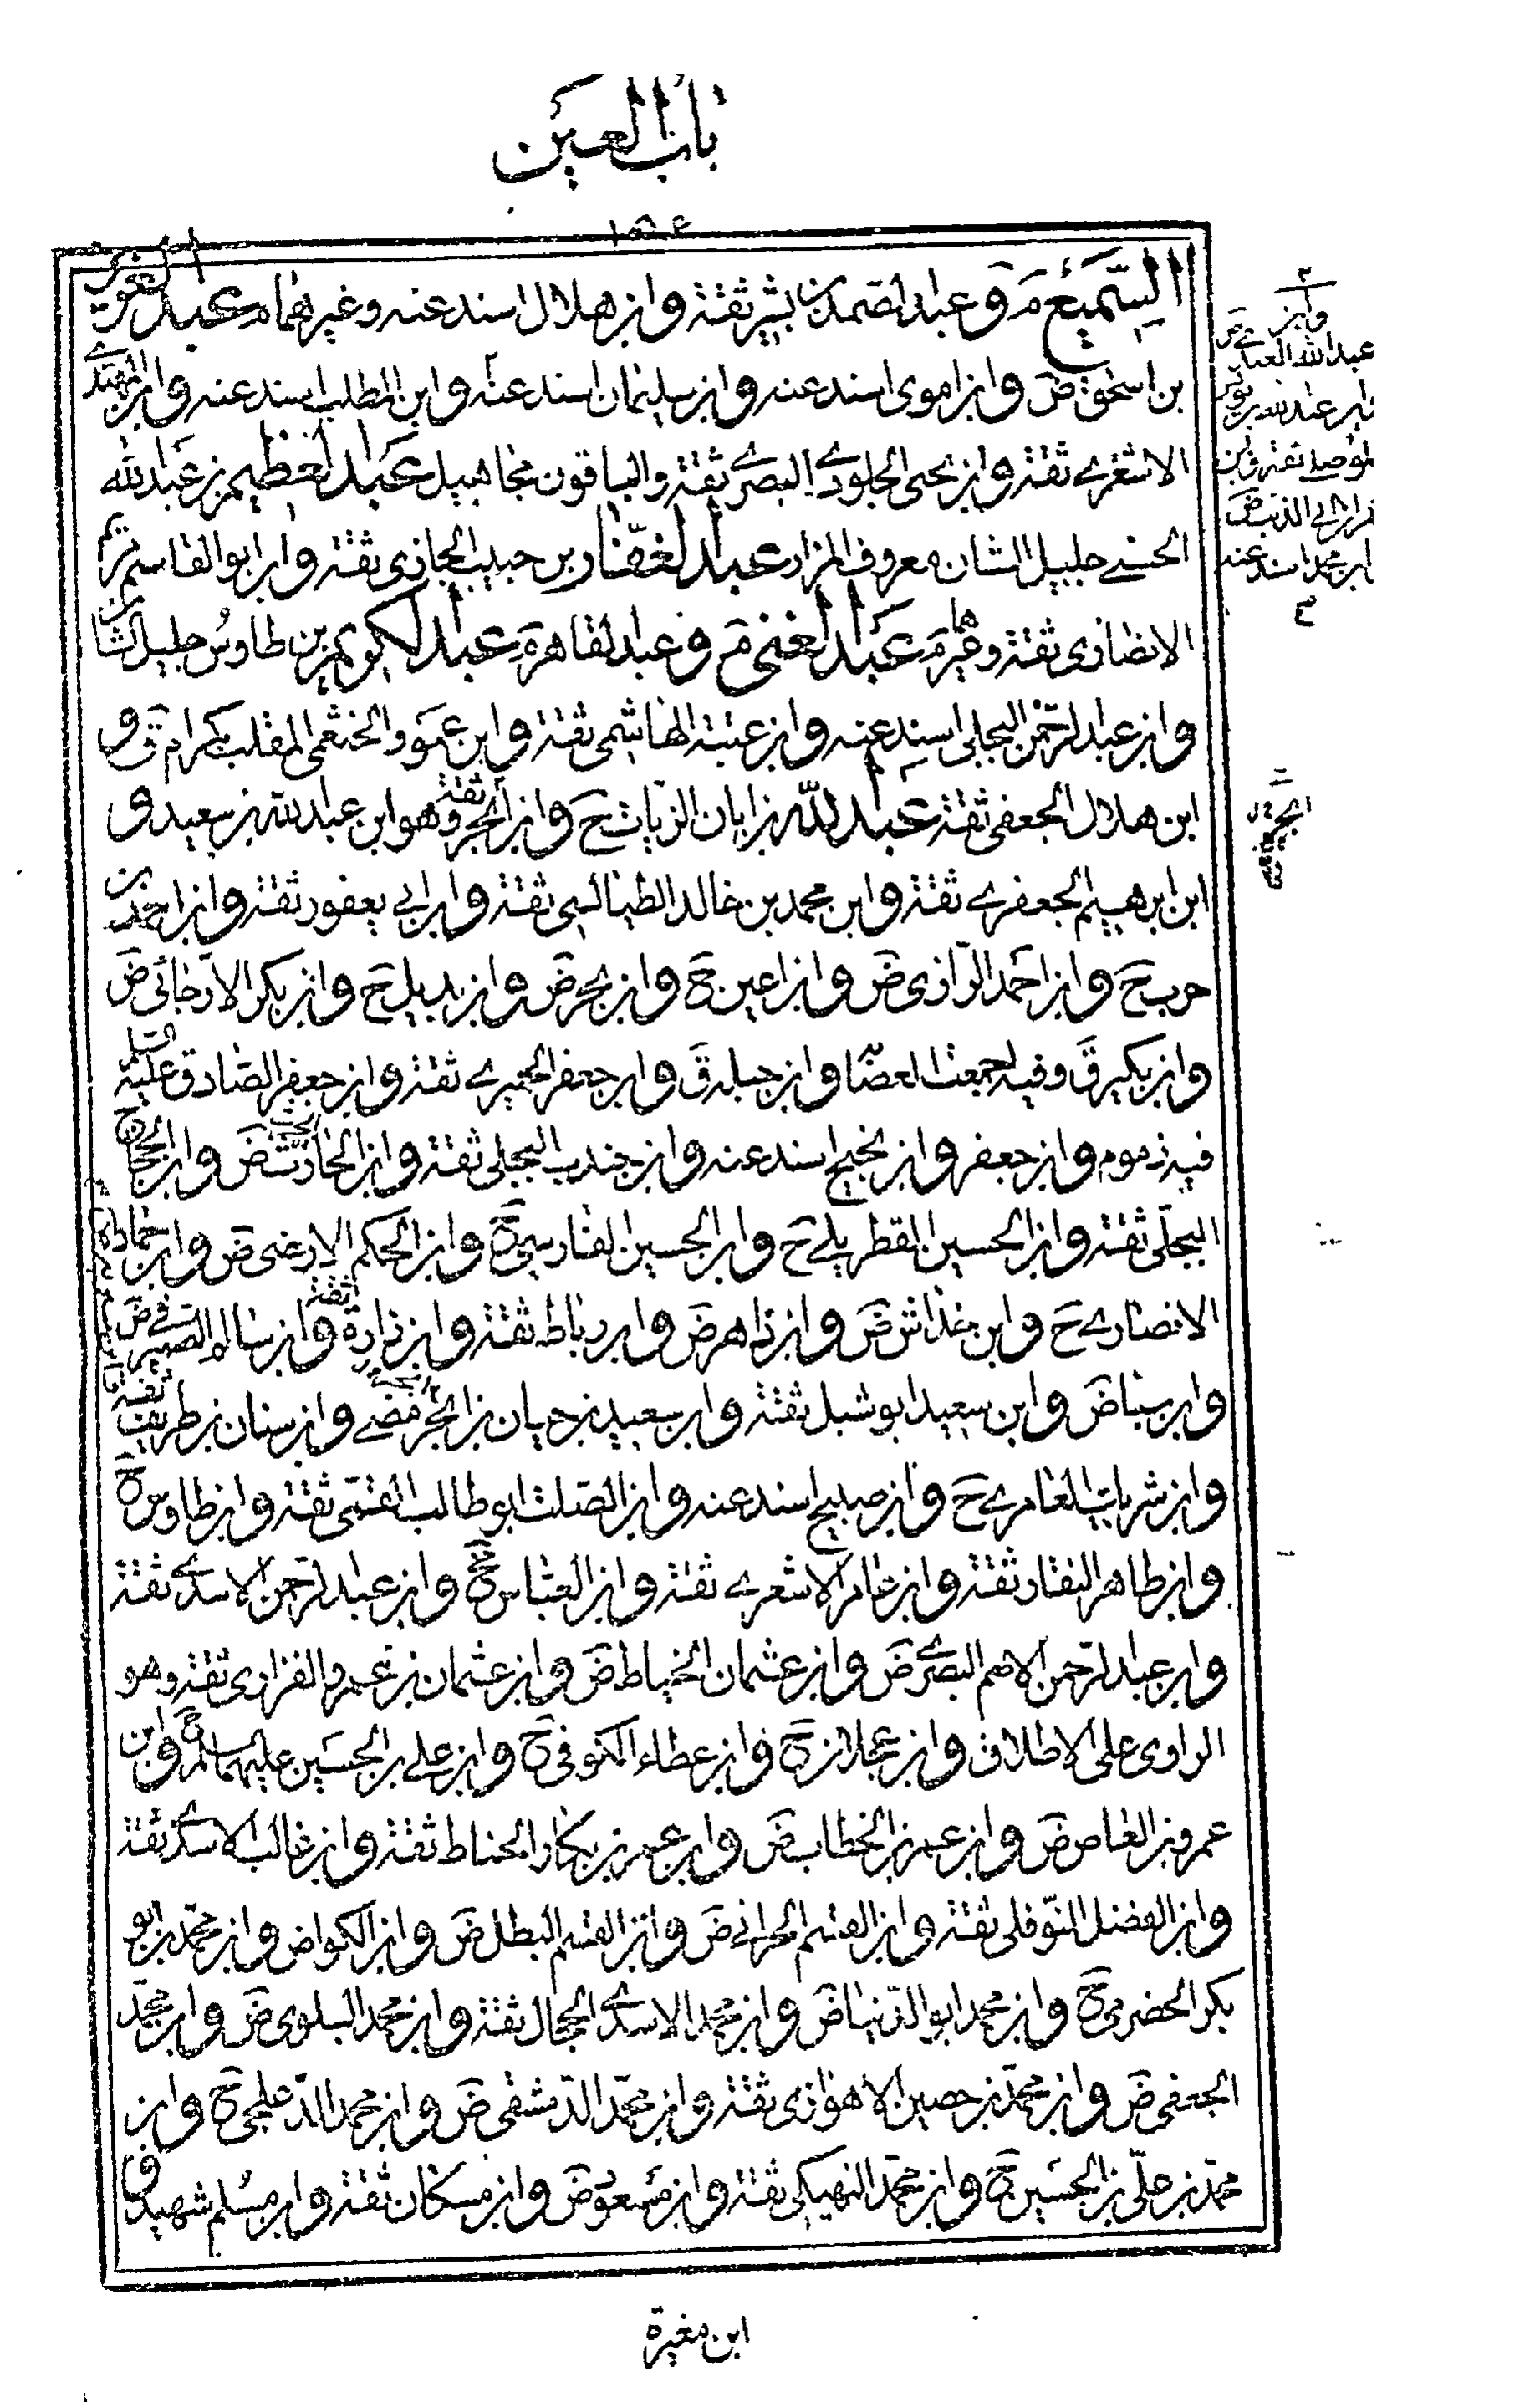 باب العين
١٥٤
السميع م ق وعبد الصمد بن بشير ثقة وابن هلال اسند عنه وغيرهما م عبد العزيز
بن اسحق ض وابن اموى اسند عنه وابن سليمان اسند عنه وابن المطلب اسند عنه وابن المهتدي
الاشعري ثقة وابن يحيى الجلودي البصري ثقة والباقون مجاهيل عبد العظيم بن عبد الله
الحسني جليل الشان معروف المزار عبد الغفار بن حبيب الجازى ثقة وابن ابو القاسم بن
الانصارى ثقة وغيرهما م عبد الغنى م وعبد القاهر م عبد الكريم بن طاوس جليل الشان
وابن عبد الرحمن البجلى اسند عنه وابن عتبة الهاشمى ثقة وابن عمرو الخثعمى الملقب بكرام ق و
ابن هلال الجعفى ثقة عبد الله بن ابان الزيات ح وابن ابجر ثقة وهو ابن عبد الله بن سعيد و
ابن ابرهيم الجعفري ثقة وابن محمد بن خالد الطيالسى ثقة وابن ابي يعفور ثقة وابن احمد بن
حرب ح وابن احمد الرازى ض وابن اعين ح وابن بحر ض وابن بديل ح وابن بكر الارجائى ض
وابن بكير ق وفيه اجمعت العصابة وابن جبلة ق وابن جعفر الحميري ثقة وابن جعفر الصادق عليه
فيه ذموم وابن جعفر وابن اسند عنه وابن جندب البجلى ثقة وابن الحارث ض وابن الحجاج
البجلى ثقة وابن الحسين القطربلي ح وابن الحسين الفارسى ح وابن الحكم الارمنى ض وابن حماد
الانصاري ح وابن خداش ض وابن داهر ض وابن رباط ثقة وابن زرارة ثقة وابن سالم الصيرفي ض
وابن سبا ض وابن سعيد ابو شبل ثقة وابن سعيد بن حيان بن ابجر مضى وابن سنان بن طريف ثقة
وابن شريك العامري ح وابن صبيح اسند عنه وابن الصلت ابو طالب القمى ثقة وابن طاوس ح
وابن طاهر النقار ثقة وابن عامر الاشعري ثقة وابن العباس ح وابن عبد الرحمن الاسدي ثقة
وابن عبد الرحمن الاصم البصري ض وابن عثمان الخياط ض وابن عثمان بن عمرو الفزارى ثقة وهو
الراوى على الاطلاق وابن عجلان ح وابن عطاء الكوفى ح وابن علي بن الحسين عليهما السلام ح وابن
عمرو بن العاص ض وابن عمر بن الخطاب ض وابن عمر بن بكار الحناط ثقة وابن غالب الاسدي ثقة
وابن الفضل النوفلى ثقة وابن القسم الحراني ض وابن القسم البطل ض وابن الكوا ض وابن محمد ابو
بكر الحضرمى ح وابن محمد ابو الدنيا ض وابن محمد الاسدي الحجال ثقة وابن محمد البلوى ض وابن محمد
الجعفى ض وابن محمد بن حصين الاهوازى ثقة وابن محمد الدمشقى ض وابن محمد الدعلجى ح وابن
محمد بن على بن الحسين ح وابن محمد النهيكى ثقة وابن مسعود ض وابن مسكان ثقة وابن مسلم شهيد و
ابن مغيرة
وابن
عبد الله العبدي ض
وابن عبد الله بن
الموصلي ثقة وابن
ابن محمد اسند عنه